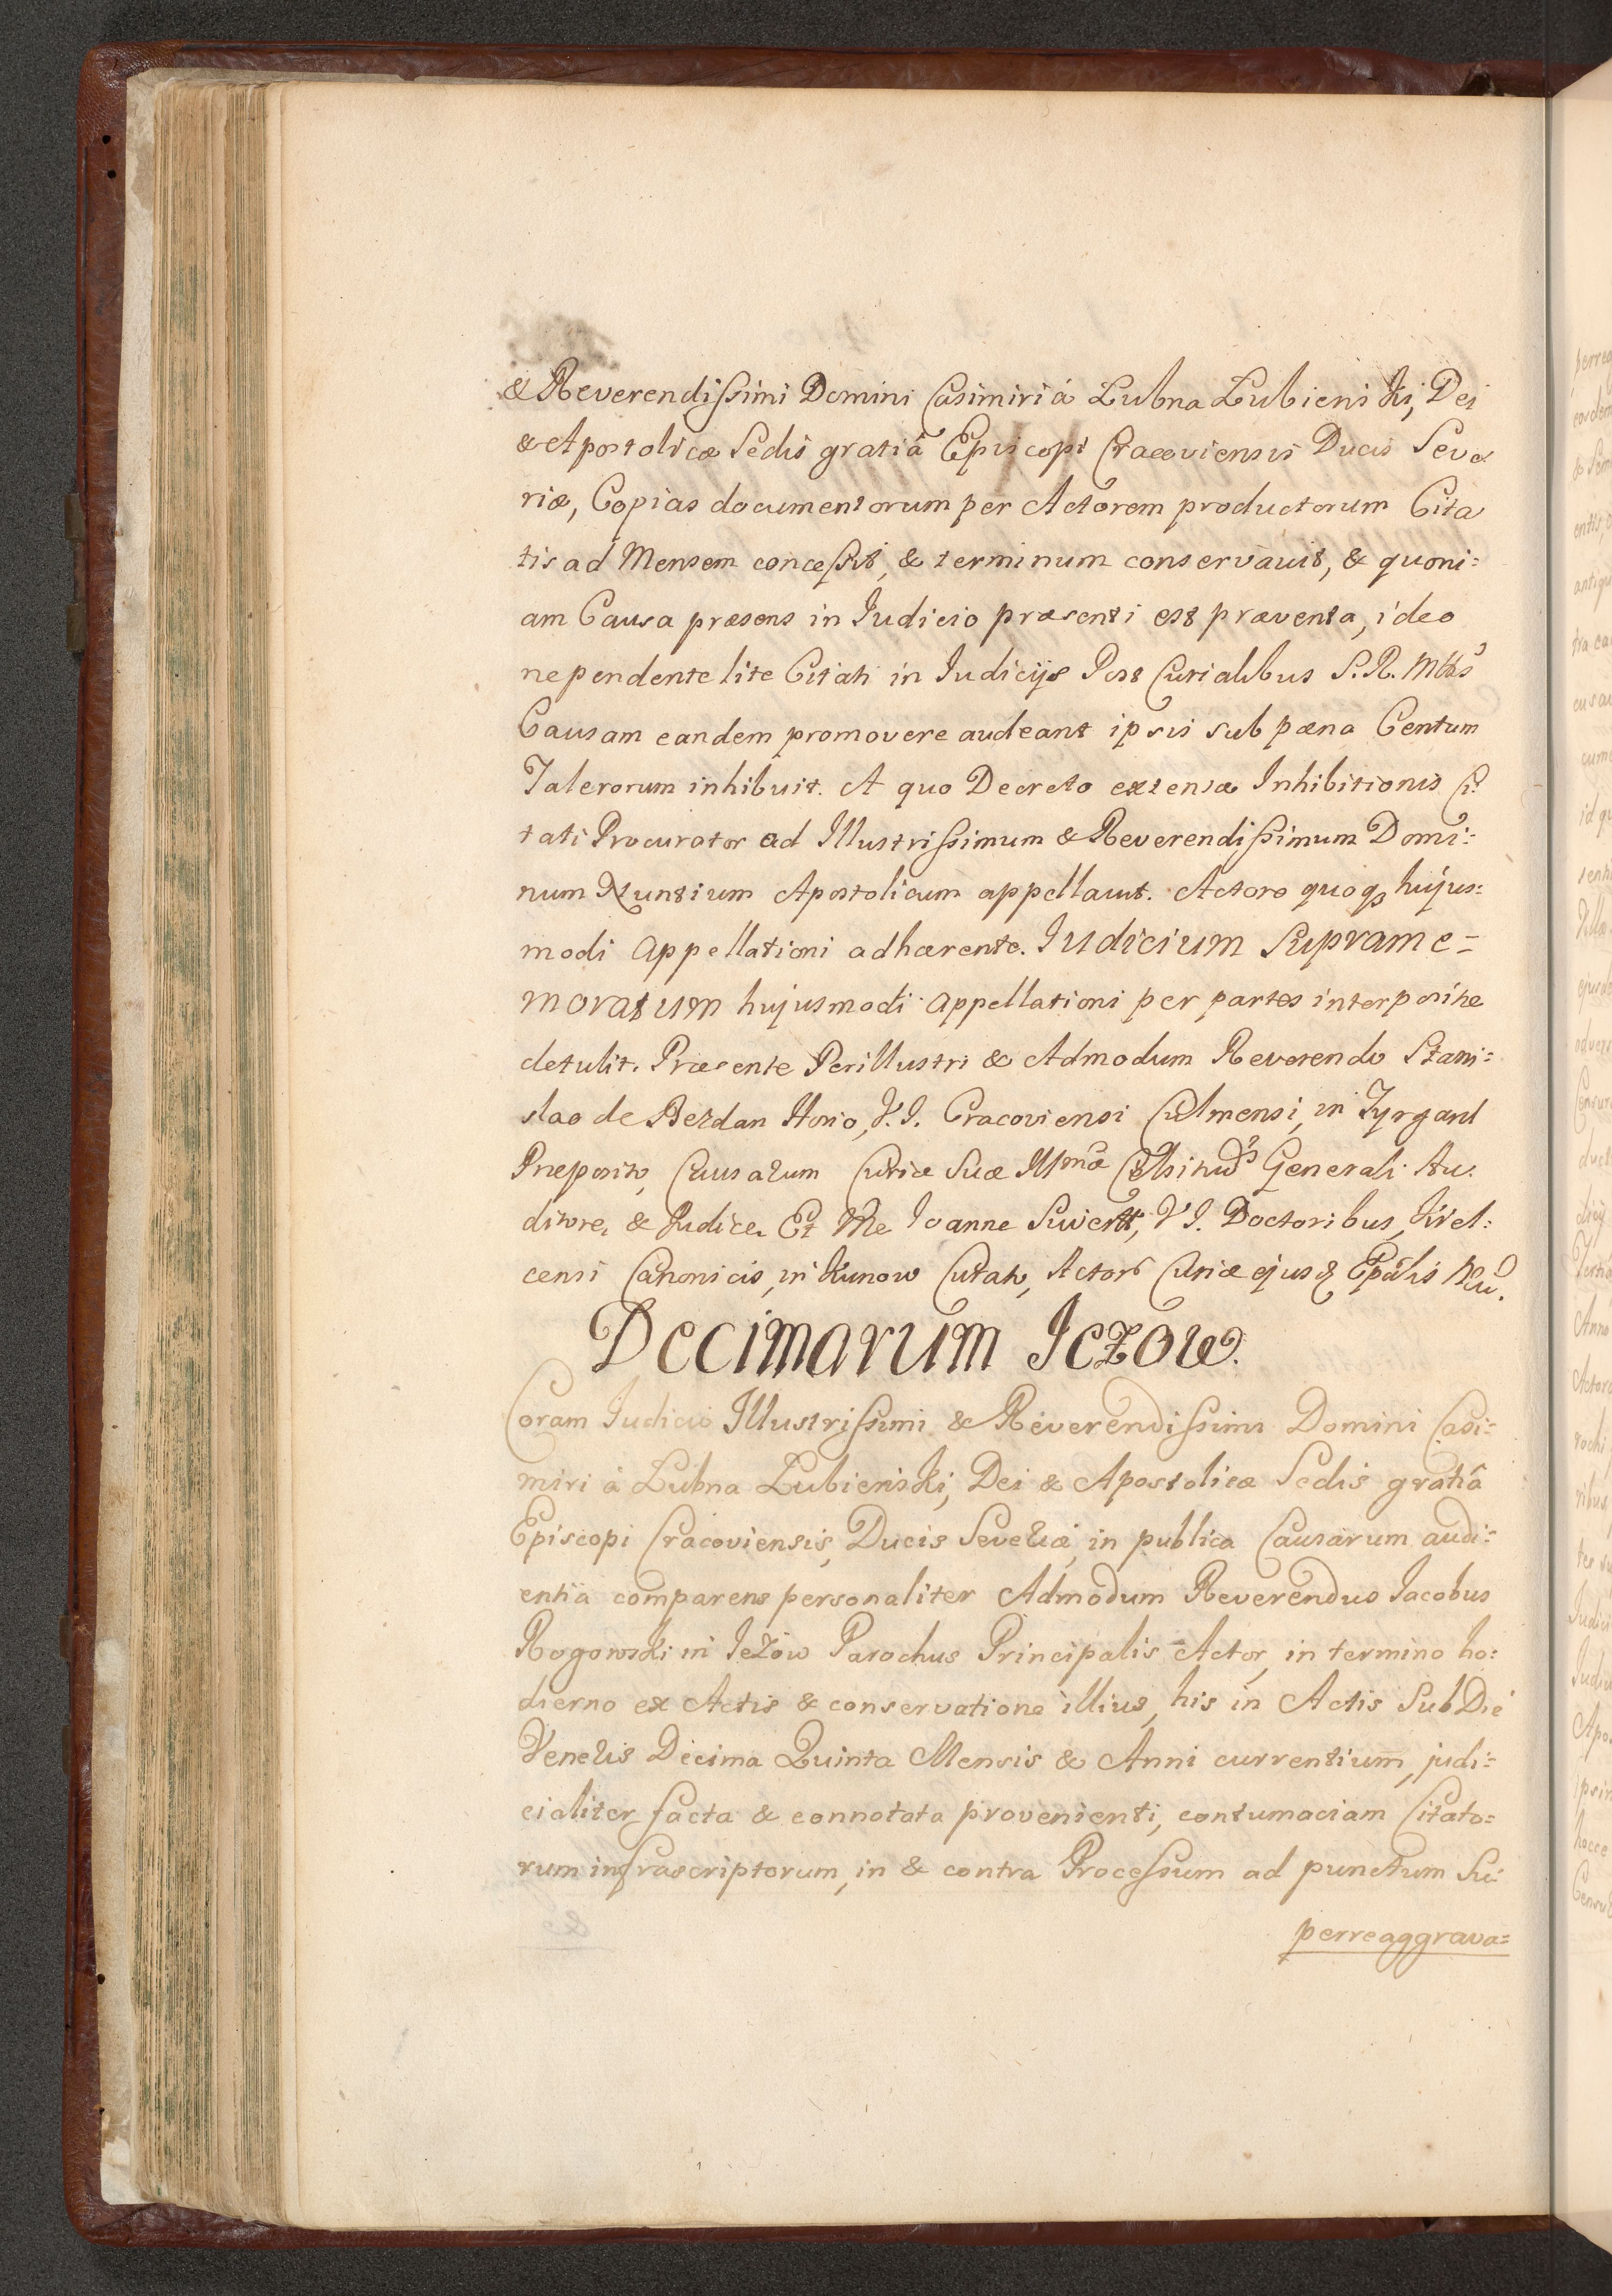 & Reverendissimi Domini Casimiri á Lubna Lubienski, Dei
& Apostolicæ Sedis gratiâ Episcopi Cracoviensis Ducis Seve
riæ, Copias documentorum per Actorem productorum Cita
tis ad Mensem concessit, & terminum conservavit, & quoni=
am Causa præsens in Iudicio præsenti est præventa, ideo
ne pendente lite Citati in Iudicijs Post Curialibus S. R. Mttis
Causam eandem promovere audeant ipsis sub pæna Centum
Talerorum inhibuit. A quo Decreto extensæ Inhibitionis Ci
tati Procurator ad Illustrissimum & Reverendissimum Domi=
num Nuntium Apostolicum appellavit. Actore quoq3 hujus=
modi appellationi adhærente. Iudicium Suprame=
moratum hujusmodi appellationi per partes interpositæ
detulit. Præsente Perillustri & Admodum Reverendo Stani=
slao de Bezdan Hosio, V. I. Cracoviensi Culmensi, in
Præposito, Causarum Curiæ Suæ Illmæ Celsitudis Generali Au=
ditore, & Iudice. Et Me Ioanne V I. Doctoribus, Kiel=
censi Canonicis, in Kunow Curato, Actor Curiæ ejusd Epalis
Decimarum Iezow.
Coram Iudicio Illustrissimi & Reverendissimi Domini Casi=
miri â Lubna Lubienski, Dei & Apostolicæ Sedis gratiâ
Episcopi Cracoviensis, Ducis Severiæ, in publica Causarum audi=
entia comparens personaliter Admodum Reverendus Iacobus
Rogowski in Ieżow Parochus Principalis Actor, in termino ho=
dierno ex Actis & conservatione illius, his in Actis Sub Die
Veneris Decima Quinta Mensis & Anni currentium, judi=
cialiter facta & connotata provenienti, contumaciam Citato=
rum infrascriptorum, in & contra Processum ad punctum Su=
perreaggrava=